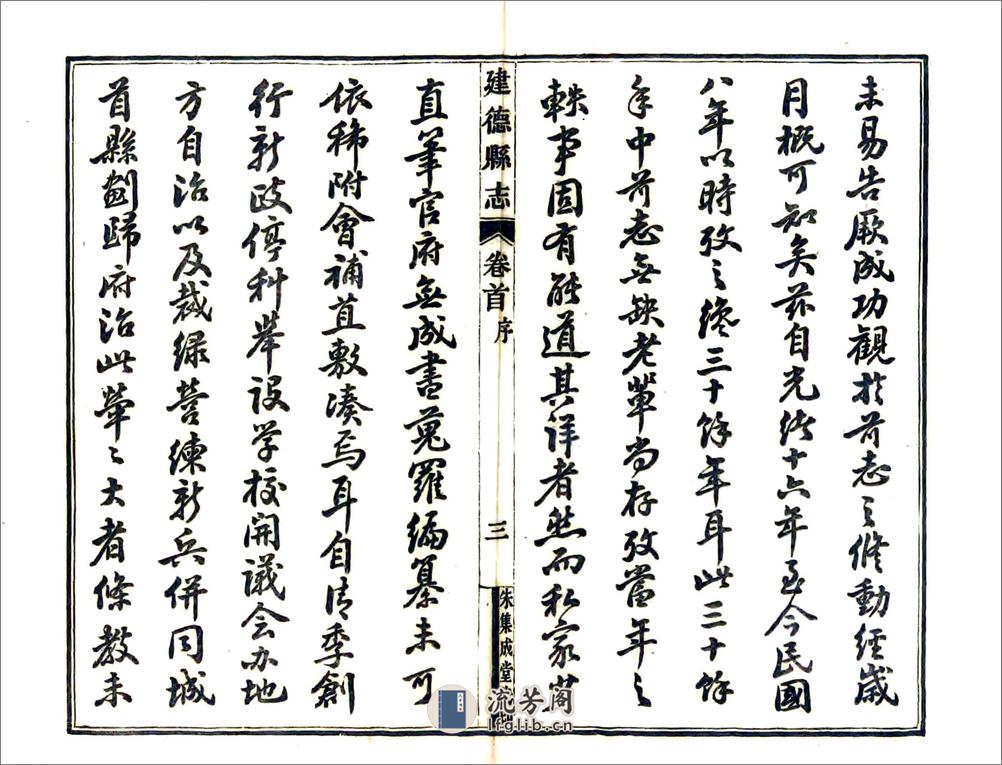 未易告厥成功觀於前志之脩動經歲
月概可知矣茲自光緒十六年至今民國
八年以時攷之纔三十餘年耳此三十餘
年中前志無缺老輩尚存攷當年之
軼事固有能道其詳者然而私家
建德縣志 卷首 序 三 朱集成堂
直筆官府無成書蒐羅編纂未可
依稀附會補苴敷湊焉耳自清季創
行新政停科舉設学校開議会办地
方自治以及裁緑營練新兵併同城
首縣劃歸府治此犖々大者條教未
流芳阁
lfglib.cn